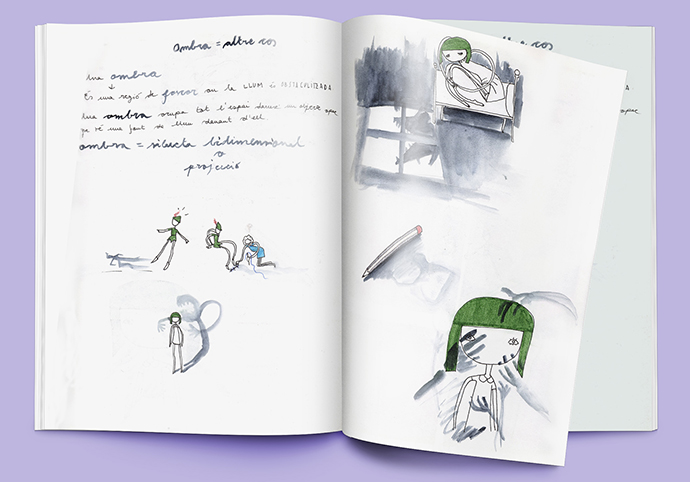 ombra = altre cos
Una ombra
↓
És una regió de foscor on la LLUM és OBSTACULITZADA.
Una ombra ocupa tot l'espai darrere un objecte opac
ja té una font de llum davant d'ell.
ombra = silueta bidimensional
o
projecció
cos